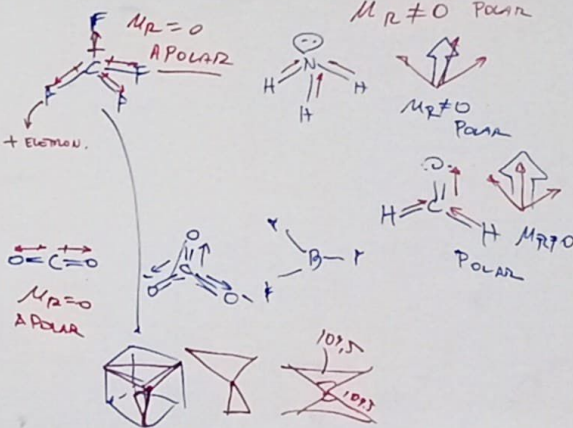 F μR = 0
APOLAR
C F
F F
+ ELETRON.
N
H H
H
μR ≠ 0 POLAR
μR ≠ 0
POLAR
O
C
H H
μR ≠ 0
POLAR
O=C=O
μR = 0
APOLAR
O
O O
B
109,5
109,5